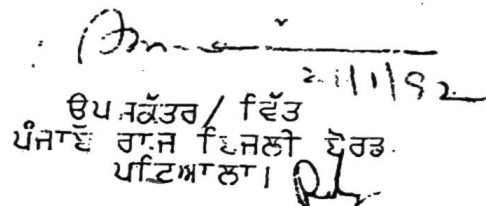 21/1/92
ਉਪ ਸਕੱਤਰ/ ਵਿੱਤ
ਪੰਜਾਬ ਰਾਜ ਬਿਜਲੀ ਬੋਰਡ
ਪਟਿਆਲਾ।